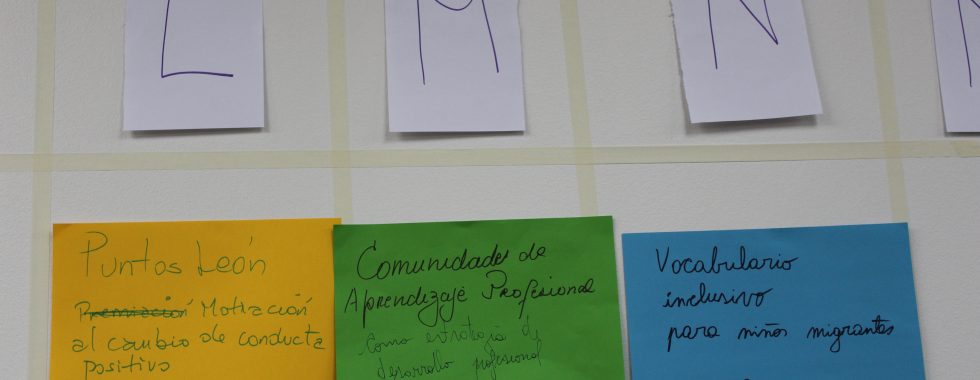 L M N
Puntos León
Premiación Motivación
al cambio de conducta
positivo
Comunidades de
Aprendizaje Profesional
Como estrategia de
desarrollo profesional
Vocabulario
inclusivo
para niños migrantes